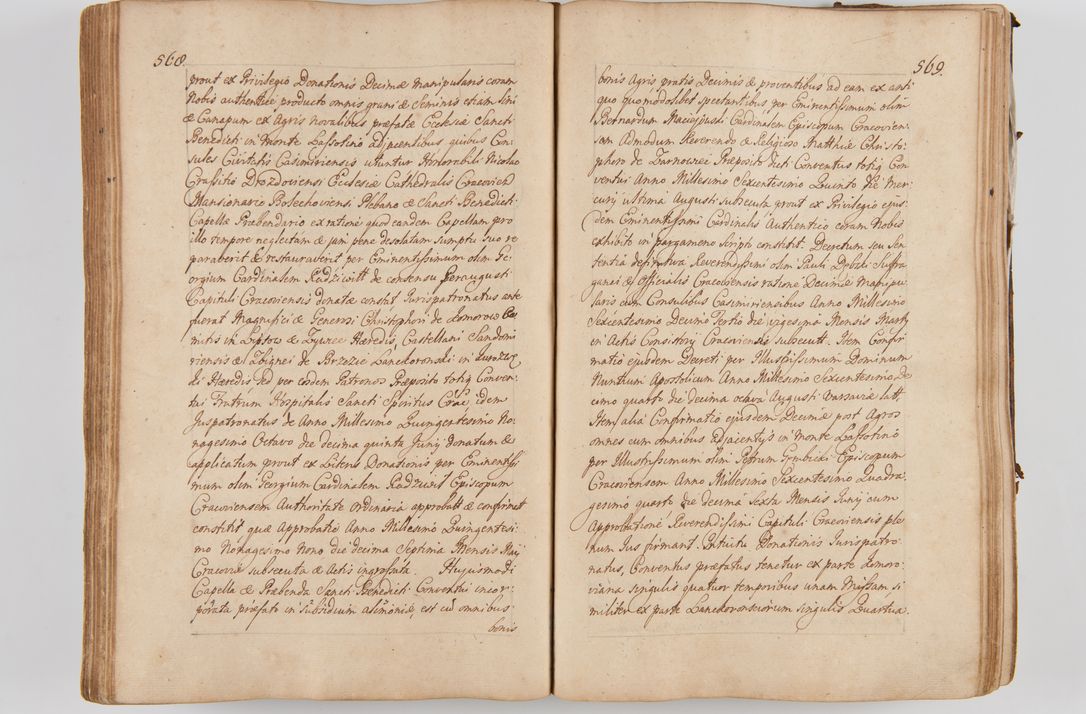 568.
prout ex Privilegio Donationis Decimæ Manipularis coram
Nobis authentice producto omnis grani & Seminis etiam Lini
& Canapum ex Agris novalibus præfatæ Ecclesiæ Sancti
Benedicti in Monte Lassotino adjacentibus quibus Con-
sules Civitatis Casimiriensis utuntur Honorabili Nicolao
Crassitio Drozdoviensi Ecclesiæ Cathedralis Cracovien
Mansionario Bolechoviensi Plebano & Sancti Benedicti
Capellæ Præbendario ex ratione quod eandem Capellam pro
illo tempore neglectam & jam pene desolatam Sumptu suo re
paraberit & restauraverit per Eminentissimum olim Ge-
orgium Cardinalem Radziwill de consensu Peraugusti
Capituli Cracoviensis donatæ constat Jurispatronatus ante
fuerat Magnifici & Generosi Christophori de Komorow Co
mitis in Liptow & Zywiec Heredis, Castellani Sandomi
riensis & Zbignei de Brzezie Lanckoronski in
di Hæredis sed per eosdem Patronos Præposito totiq Conven-
tui Fratrum Hospitalis Sancti Spiritus Crac, idem
Juspatronatus de Anno Millesimo Quingentesimo No-
nagesimo Octavo die decima quinta Junij donatum &
applicatum prout ex Literis Donationis per Eminentissi
mum olim Georgium Cardinalem Radziwil Episcopum
Cracoviensem Authoritate ordinaria approbatt & confirmat
constitit quæ Approbatio Anno Millesimo Quingentesi-
mo Nonagesimo Nono die decima Septima Mensis Maij
Cracoviæ subsecuta & Actis ingrossata. Hujusmodi
Capella & Præbenda Sancti Benedicti Conventui incor-
porata præfato in Subsidium Alimoniæ, est cu omnibus
bonis
569.
bonis Agris, pratis, Decimis & proventibus ad eam ex anti
quo quomodolibet spectantibus per Eminentissimum olim
Bernardum Maciejouski Cardinalem Episcopum Cracovien-
sem Admodum Reverendo & Religioso Matthiæ Christo-
phoro de Præposito dicti Conventus totiq Con
ventui Anno Millesimo Sexcentesimo Quinto die Mer-
curij ultima Augusti subsecuta prout ex Privilegio ejus-
dem Eminentissimi Cardinalis Authentico coram Nobis
exhibito in pargameno scripto constitit. Decretum seu Sen
tentia definitiva Reverendissimi olim Pauli Dębski Suffra
ganei & Officialis Cracoviensis ratione Decimæ Manipu-
laris cum Consulibus Casimiriensibus Anno Millesimo
Sexcentesimo Decimo Tertio die vigesima Mensis Martij
in Actis Consistorij Cracoviensis subsecutt. Item Confir
matio ejusdem Decreti per Illustrissimum Dominum
Nuntium Apostolicum Anno Millesimo Sexcentesimo de
cimo quarto die decima octava Augusti Varsaviæ latt.
Item alia Confirmatio ejusdem Decimæ post Agros
omnes cum omnibus adjacentijs in Monte Lassotino
per Illustrissimum olim Petrum Gembicki Episcopum
Cracoviensem Anno Millesimo Sexcentesimo Quadra-
gesimo quarto die decima Sexta Mensis Junij cum
Approbatione Reverendissimi Capituli Cracoviensis ple
num Jus firmant. Intuitu Donationis Jurispatro-
natus, Conventus præfatus tenetur ex parte Komoro-
viana singulis quatuor temporibus unam Missam si
militer ex parte Lanckoronsciorum singulis Quartua-